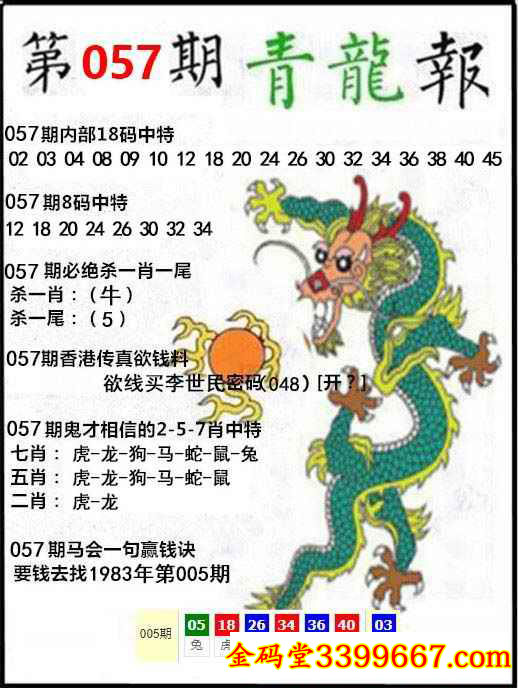 第057期青龍報
057期内部18码中特
02 03 04 08 09 10 12 18 20 24 26 30 32 34 36 38 40 45
057期8码中特
12 18 20 24 26 30 32 34
057期必绝杀一肖一尾
杀一肖：(牛)
杀一尾：(5)
057期香港传真欲钱料
欲线买李世民密码(048) [开？]
057期鬼才相信的2-5-7肖中特
七肖：虎-龙-狗-马-蛇-鼠-兔
五肖：虎-龙-狗-马-蛇-鼠
二肖：虎-龙
057期马会一句赢钱诀
要钱去找1983年第005期
005期 05 18 26 34 36 40 03
兔 虎
金码堂3399667.com